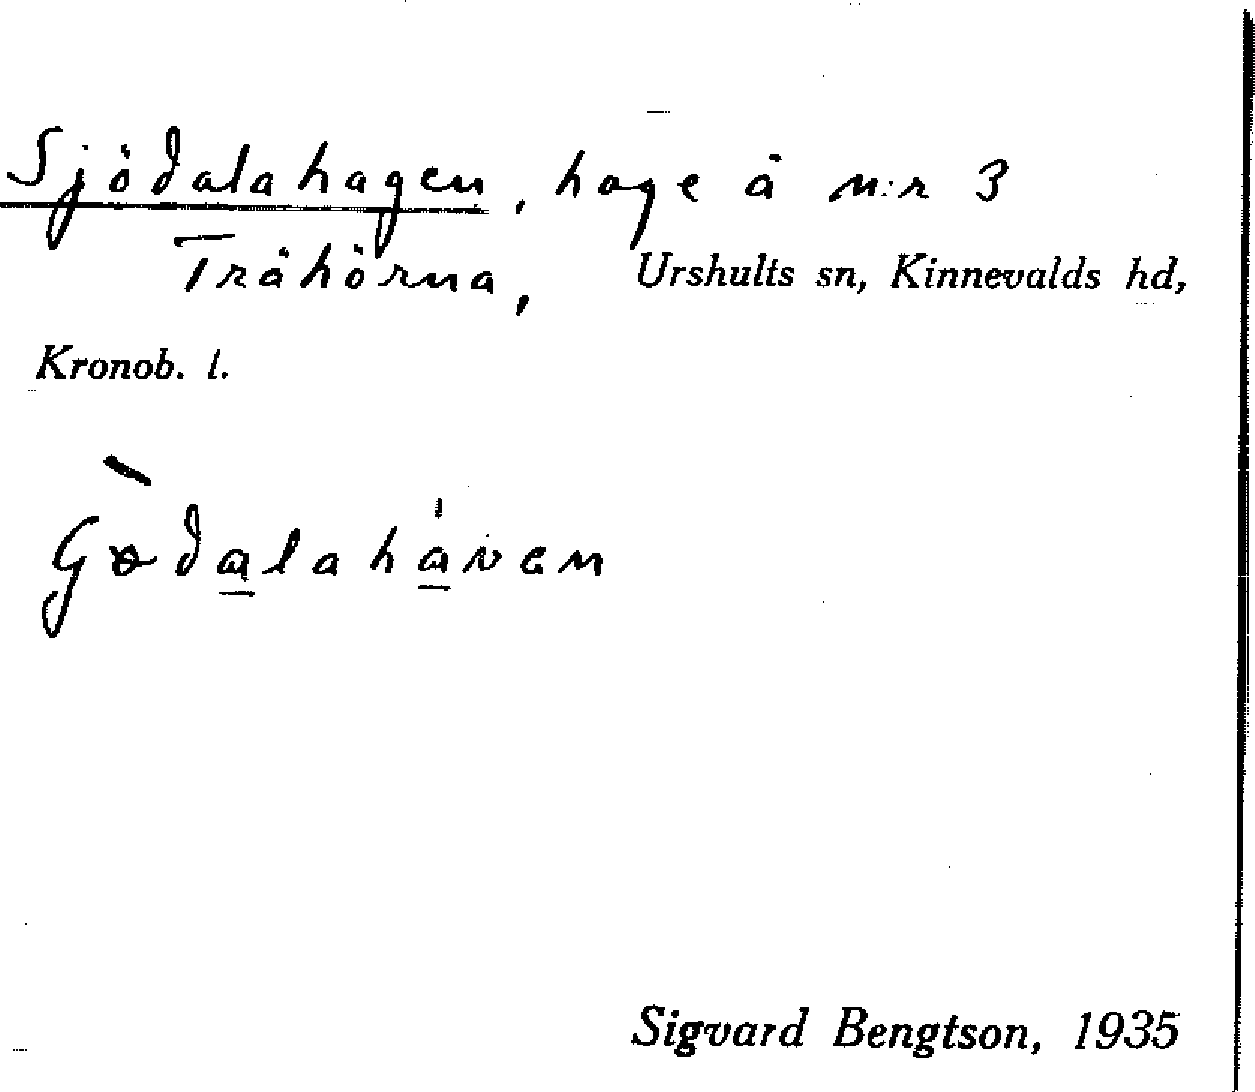 Sjödalahagen, hage å n:r 3
Tråhörna, Urshults sn, Kinnevalds hd,
Kronob. l.
Sigvard Bengtson, 1935